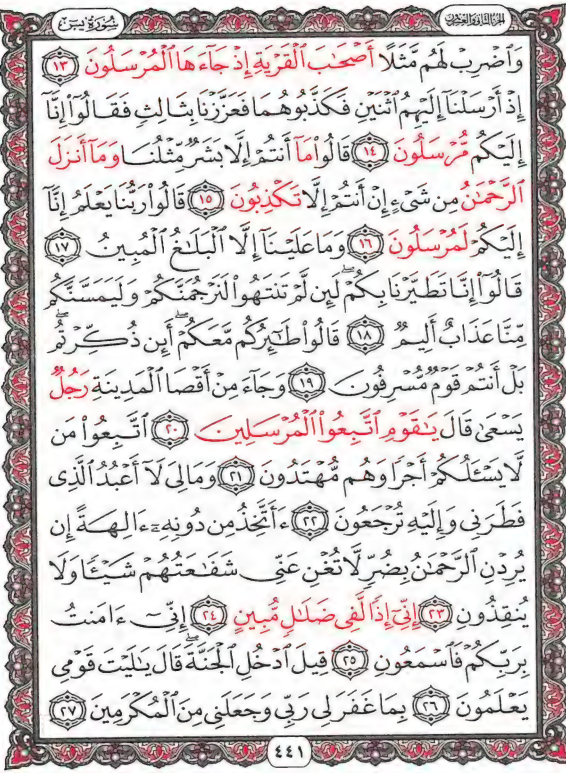 سُورَةُ يسٓ
الجزء الثاني والعشرون
وَٱضْرِبْ لَهُم مَّثَلًا أَصْحَٰبَ ٱلْقَرْيَةِ إِذْ جَآءَهَا ٱلْمُرْسَلُونَ ١٣
إِذْ أَرْسَلْنَآ إِلَيْهِمُ ٱثْنَيْنِ فَكَذَّبُوهُمَا فَعَزَّزْنَا بِثَالِثٍ فَقَالُوٓا۟ إِنَّآ
إِلَيْكُم مُّرْسَلُونَ ١٤ قَالُوا۟ مَآ أَنتُمْ إِلَّا بَشَرٌ مِّثْلُنَا وَمَآ أَنزَلَ
ٱلرَّحْمَٰنُ مِن شَىْءٍ إِنْ أَنتُمْ إِلَّا تَكْذِبُونَ ١٥ قَالُوا۟ رَبُّنَا يَعْلَمُ إِنَّآ
إِلَيْكُمْ لَمُرْسَلُونَ ١٦ وَمَا عَلَيْنَآ إِلَّا ٱلْبَلَٰغُ ٱلْمُبِينُ ١٧
قَالُوٓا۟ إِنَّا تَطَيَّرْنَا بِكُمْ ۖ لَئِن لَّمْ تَنتَهُوا۟ لَنَرْجُمَنَّكُمْ وَلَيَمَسَّنَّكُم
مِّنَّا عَذَابٌ أَلِيمٌ ١٨ قَالُوا۟ طَٰٓئِرُكُم مَّعَكُمْ ۚ أَئِن ذُكِّرْتُم ۚ
بَلْ أَنتُمْ قَوْمٌ مُّسْرِفُونَ ١٩ وَجَآءَ مِنْ أَقْصَا ٱلْمَدِينَةِ رَجُلٌ
يَسْعَىٰ قَالَ يَٰقَوْمِ ٱتَّبِعُوا۟ ٱلْمُرْسَلِينَ ٢٠ ٱتَّبِعُوا۟ مَن
لَّا يَسْـَٔلُكُمْ أَجْرًا وَهُم مُّهْتَدُونَ ٢١ وَمَالِىَ لَآ أَعْبُدُ ٱلَّذِى
فَطَرَنِى وَإِلَيْهِ تُرْجَعُونَ ٢٢ ءَأَتَّخِذُ مِن دُونِهِۦٓ ءَالِهَةً إِن
يُرِدْنِ ٱلرَّحْمَٰنُ بِضُرٍّ لَّا تُغْنِ عَنِّى شَفَٰعَتُهُمْ شَيْـًٔا وَلَا
يُنقِذُونِ ٢٣ إِنِّىٓ إِذًا لَّفِى ضَلَٰلٍ مُّبِينٍ ٢٤ إِنِّىٓ ءَامَنتُ
بِرَبِّكُمْ فَٱسْمَعُونِ ٢٥ قِيلَ ٱدْخُلِ ٱلْجَنَّةَ ۖ قَالَ يَٰلَيْتَ قَوْمِى
يَعْلَمُونَ ٢٦ بِمَا غَفَرَ لِى رَبِّى وَجَعَلَنِى مِنَ ٱلْمُكْرَمِينَ ٢٧
٤٤١